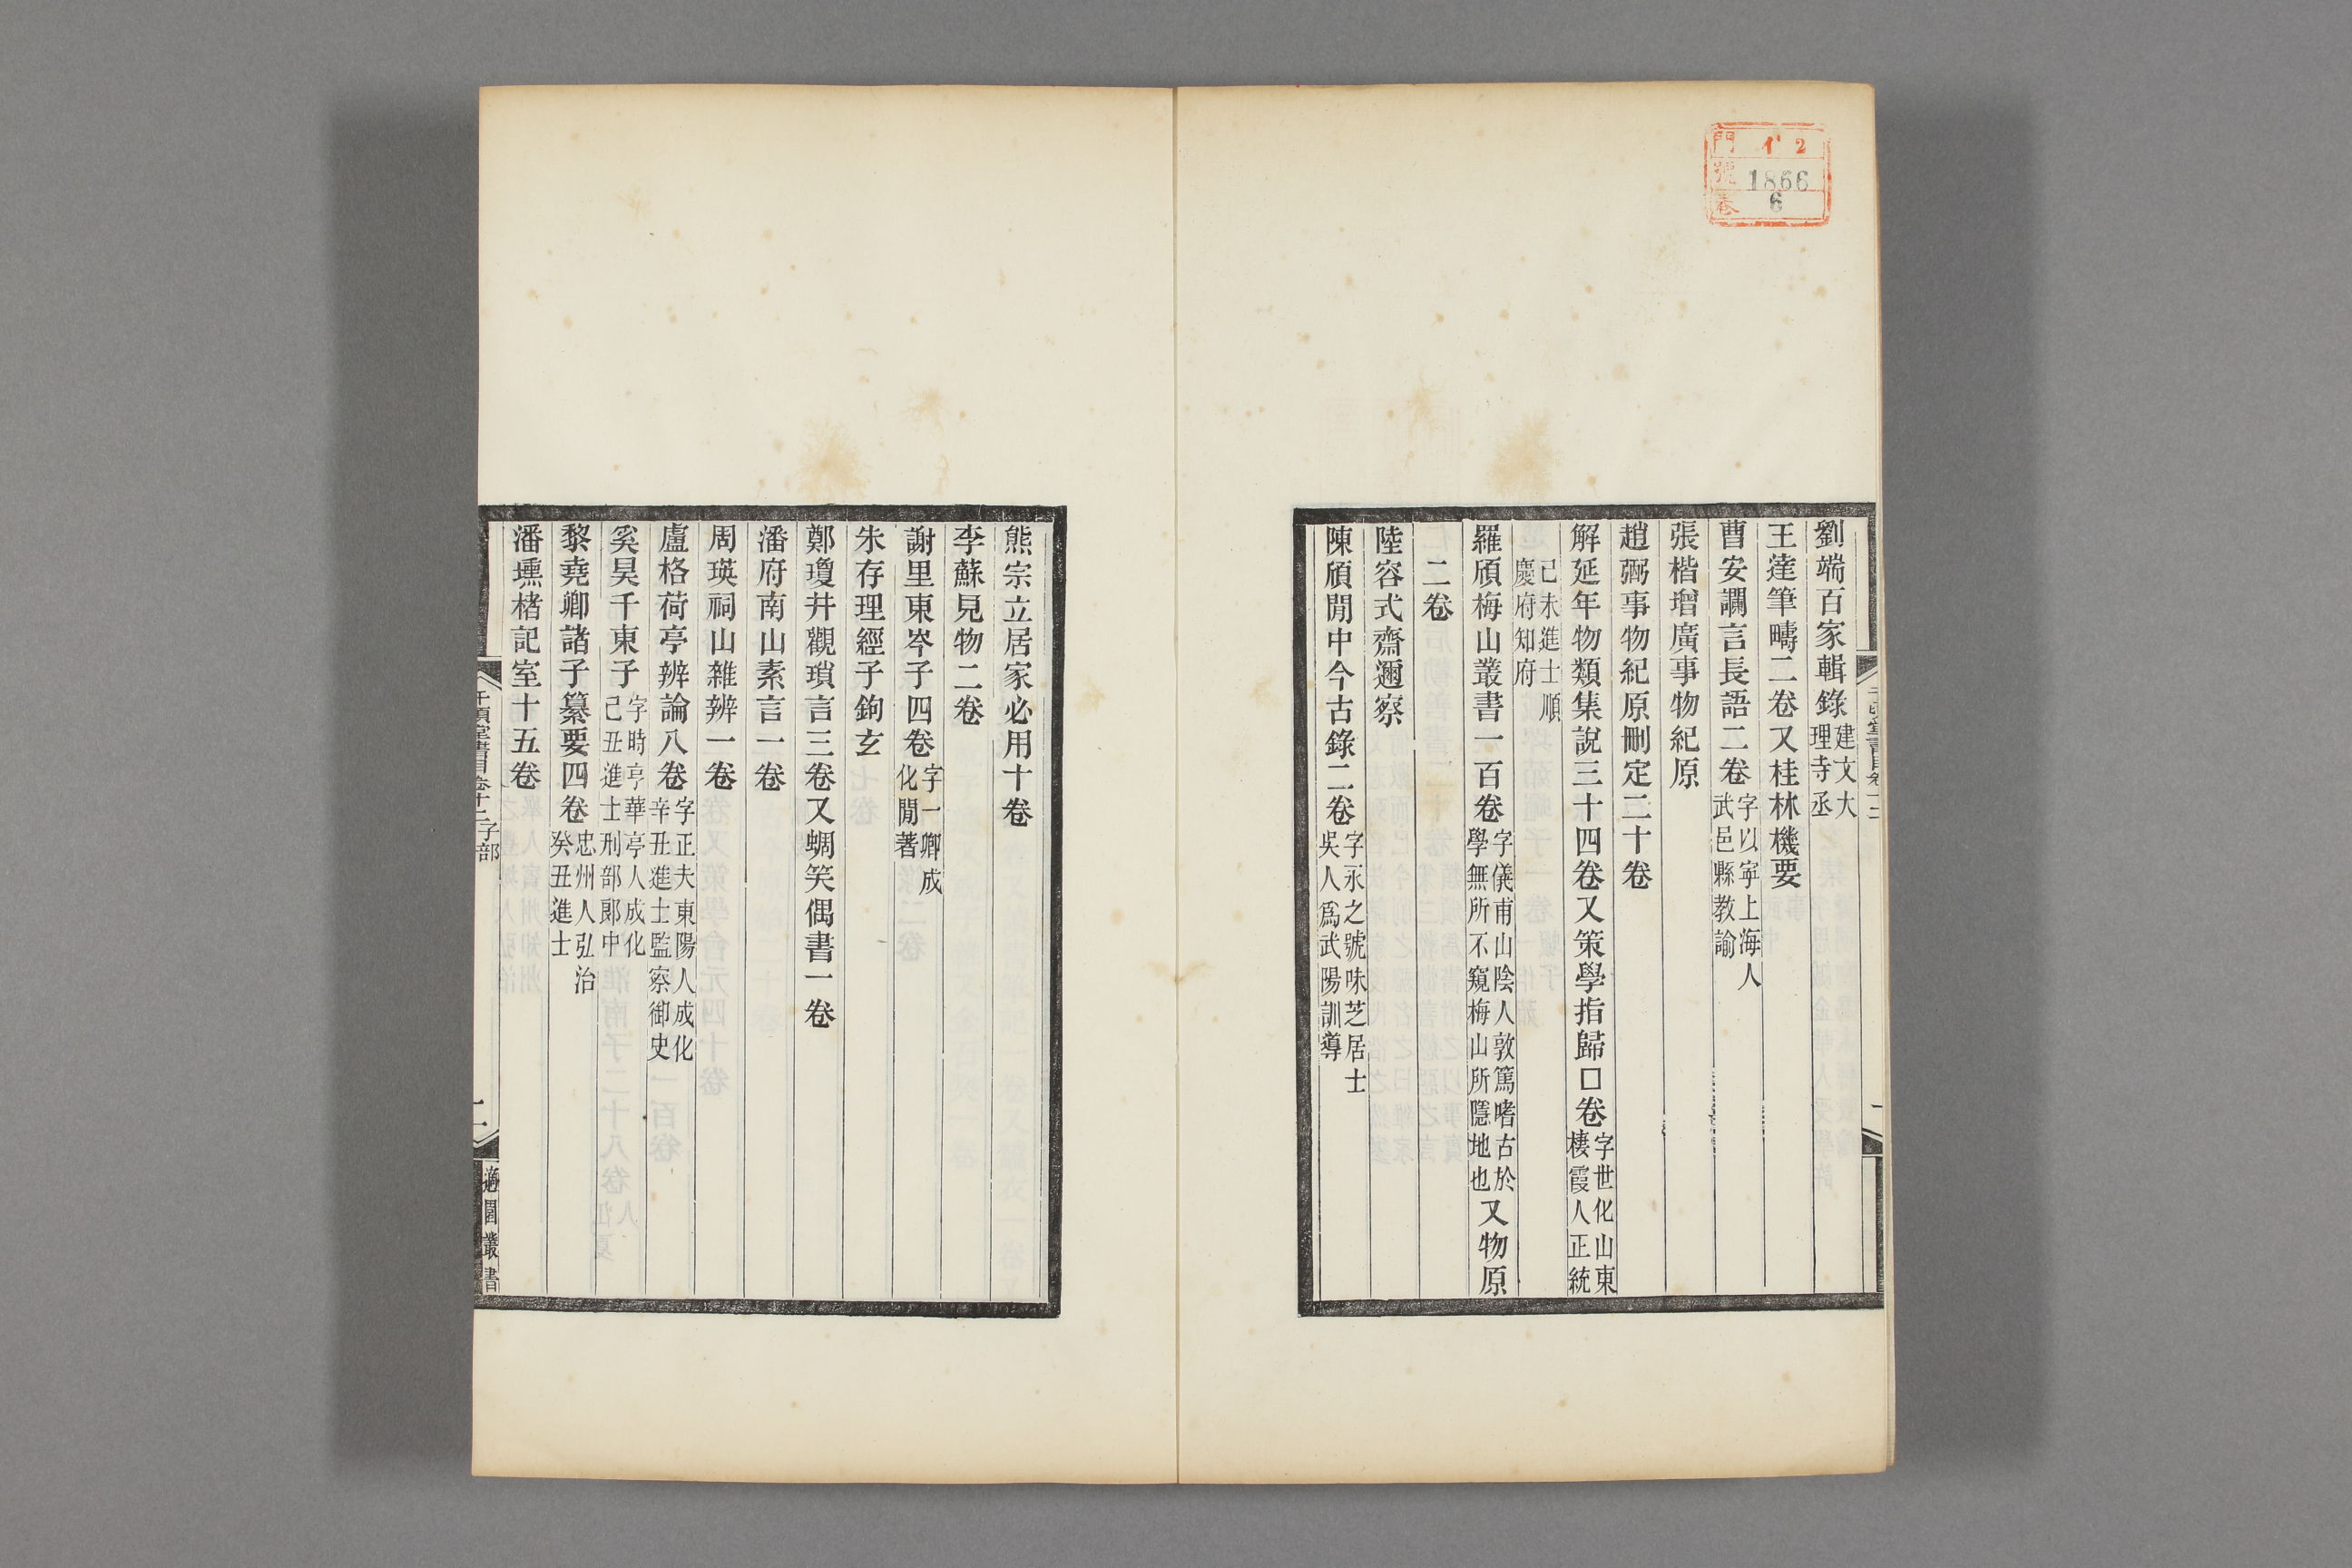 門 イ 2
號 1866
卷 6
劉端百家輯錄建文大理寺丞
王達筆疇二卷又桂林機要
曹安讕言長語二卷字以寧上海人武邑縣教諭
張楷增廣事物紀原
趙弼事物紀原刪定二十卷
解延年物類集說三十四卷又策學指歸口卷字世化山東棲霞人正統
己未進士順慶府知府
羅頎梅山叢書一百卷字儀甫山陰人敦篤嗜古於學無所不窺梅山所隱地也又物原
二卷
陸容式齋邇察
陳頎閒中今古錄二卷字永之號味芝居士吳人爲武陽訓導
熊宗立居家必用十卷
李蘇見物二卷
謝里東岑子四卷字一卿成化閒著
朱存理經子鉤玄
鄭瓊井觀瑣言三卷又蜩笑偶書一卷
潘府南山素言一卷
周瑛祠山雜辨一卷
盧格荷亭辨論八卷字正夫東陽人成化辛丑進士監察御史
奚昊千東子字時亨華亭人成化己丑進士刑部郞中
黎堯卿諸子纂要四卷忠州人弘治癸丑進士
潘壎楮記室十五卷
千頃堂書目卷十二子部
二
適園叢書